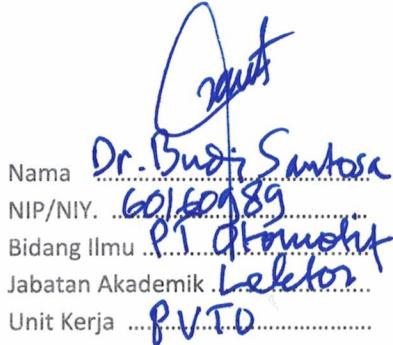 Nama Dr. Budi Santosa
NIP/NIY. 60160989
Bidang Ilmu PT Otomotif
Jabatan Akademik Lektor
Unit Kerja PVTO